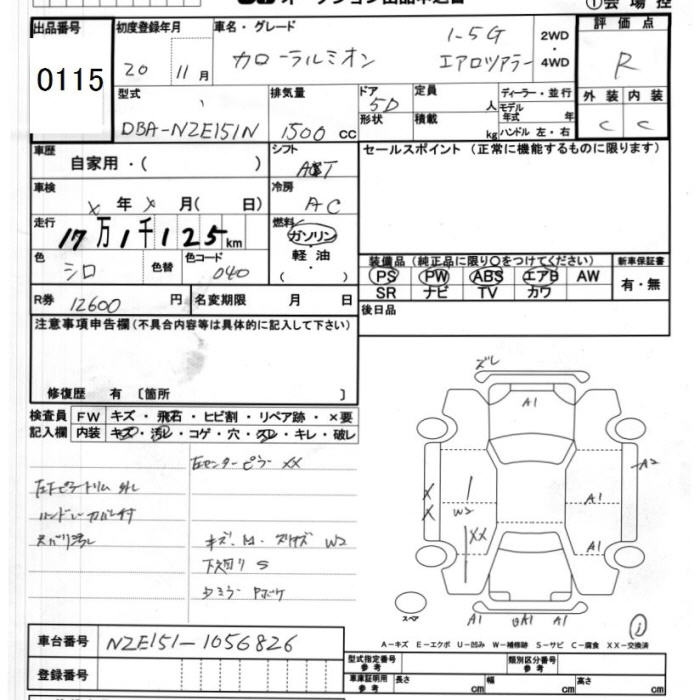 ①会場控
出品番号 初度登録年月 車名・グレード 1-5G 2WD・4WD 評価点
0115 20 11月 カローラルミオン エアロツアラー R
型式 排気量 ドア 5D 定員 人 ディーラー・並行 外装 内装
DBA-NZE151N 1500cc 形状 積載 kg モデル年式 年 ハンドル 左・右 C C
車歴 シフト セールスポイント (正常に機能するものに限ります)
自家用・( ) AT
車検 冷房
X 年 X 月( 日) AC
走行 燃料
17万1千125km ガソリン・軽油・( )
色 シロ 色替 色コード 040
装備品 (純正品に限り○をつけてください) 新車保証書
PS PW ABS エアB AW 有・無
SR ナビ TV カワ
R券 12600円 名変期限 月 日 後日品
注意事項申告欄(不具合内容等は具体的に記入して下さい)
修復歴 有 〔箇所 〕
検査員記入欄 FW キズ・飛石・ヒビ割・リペア跡・×要
内装 キズ・汚レ・コゲ・穴・スレ・キレ・破レ
左センターピラー XX
ハンドルカバー付
キズ.M. スリキズ W2
下廻り S
ズレ
A1
A2
X
X
W2
A1
XX
A1
スペア
A1 A1 A1
A-キズ E-エクボ U-凹み W-補修跡 S-サビ C-腐食 XX-交換済
車台番号 NZE151-1056826
型式指定番号 参考 類別区分番号 参考
登録番号
車庫証明用 参考 長さ cm 幅 cm 高さ cm